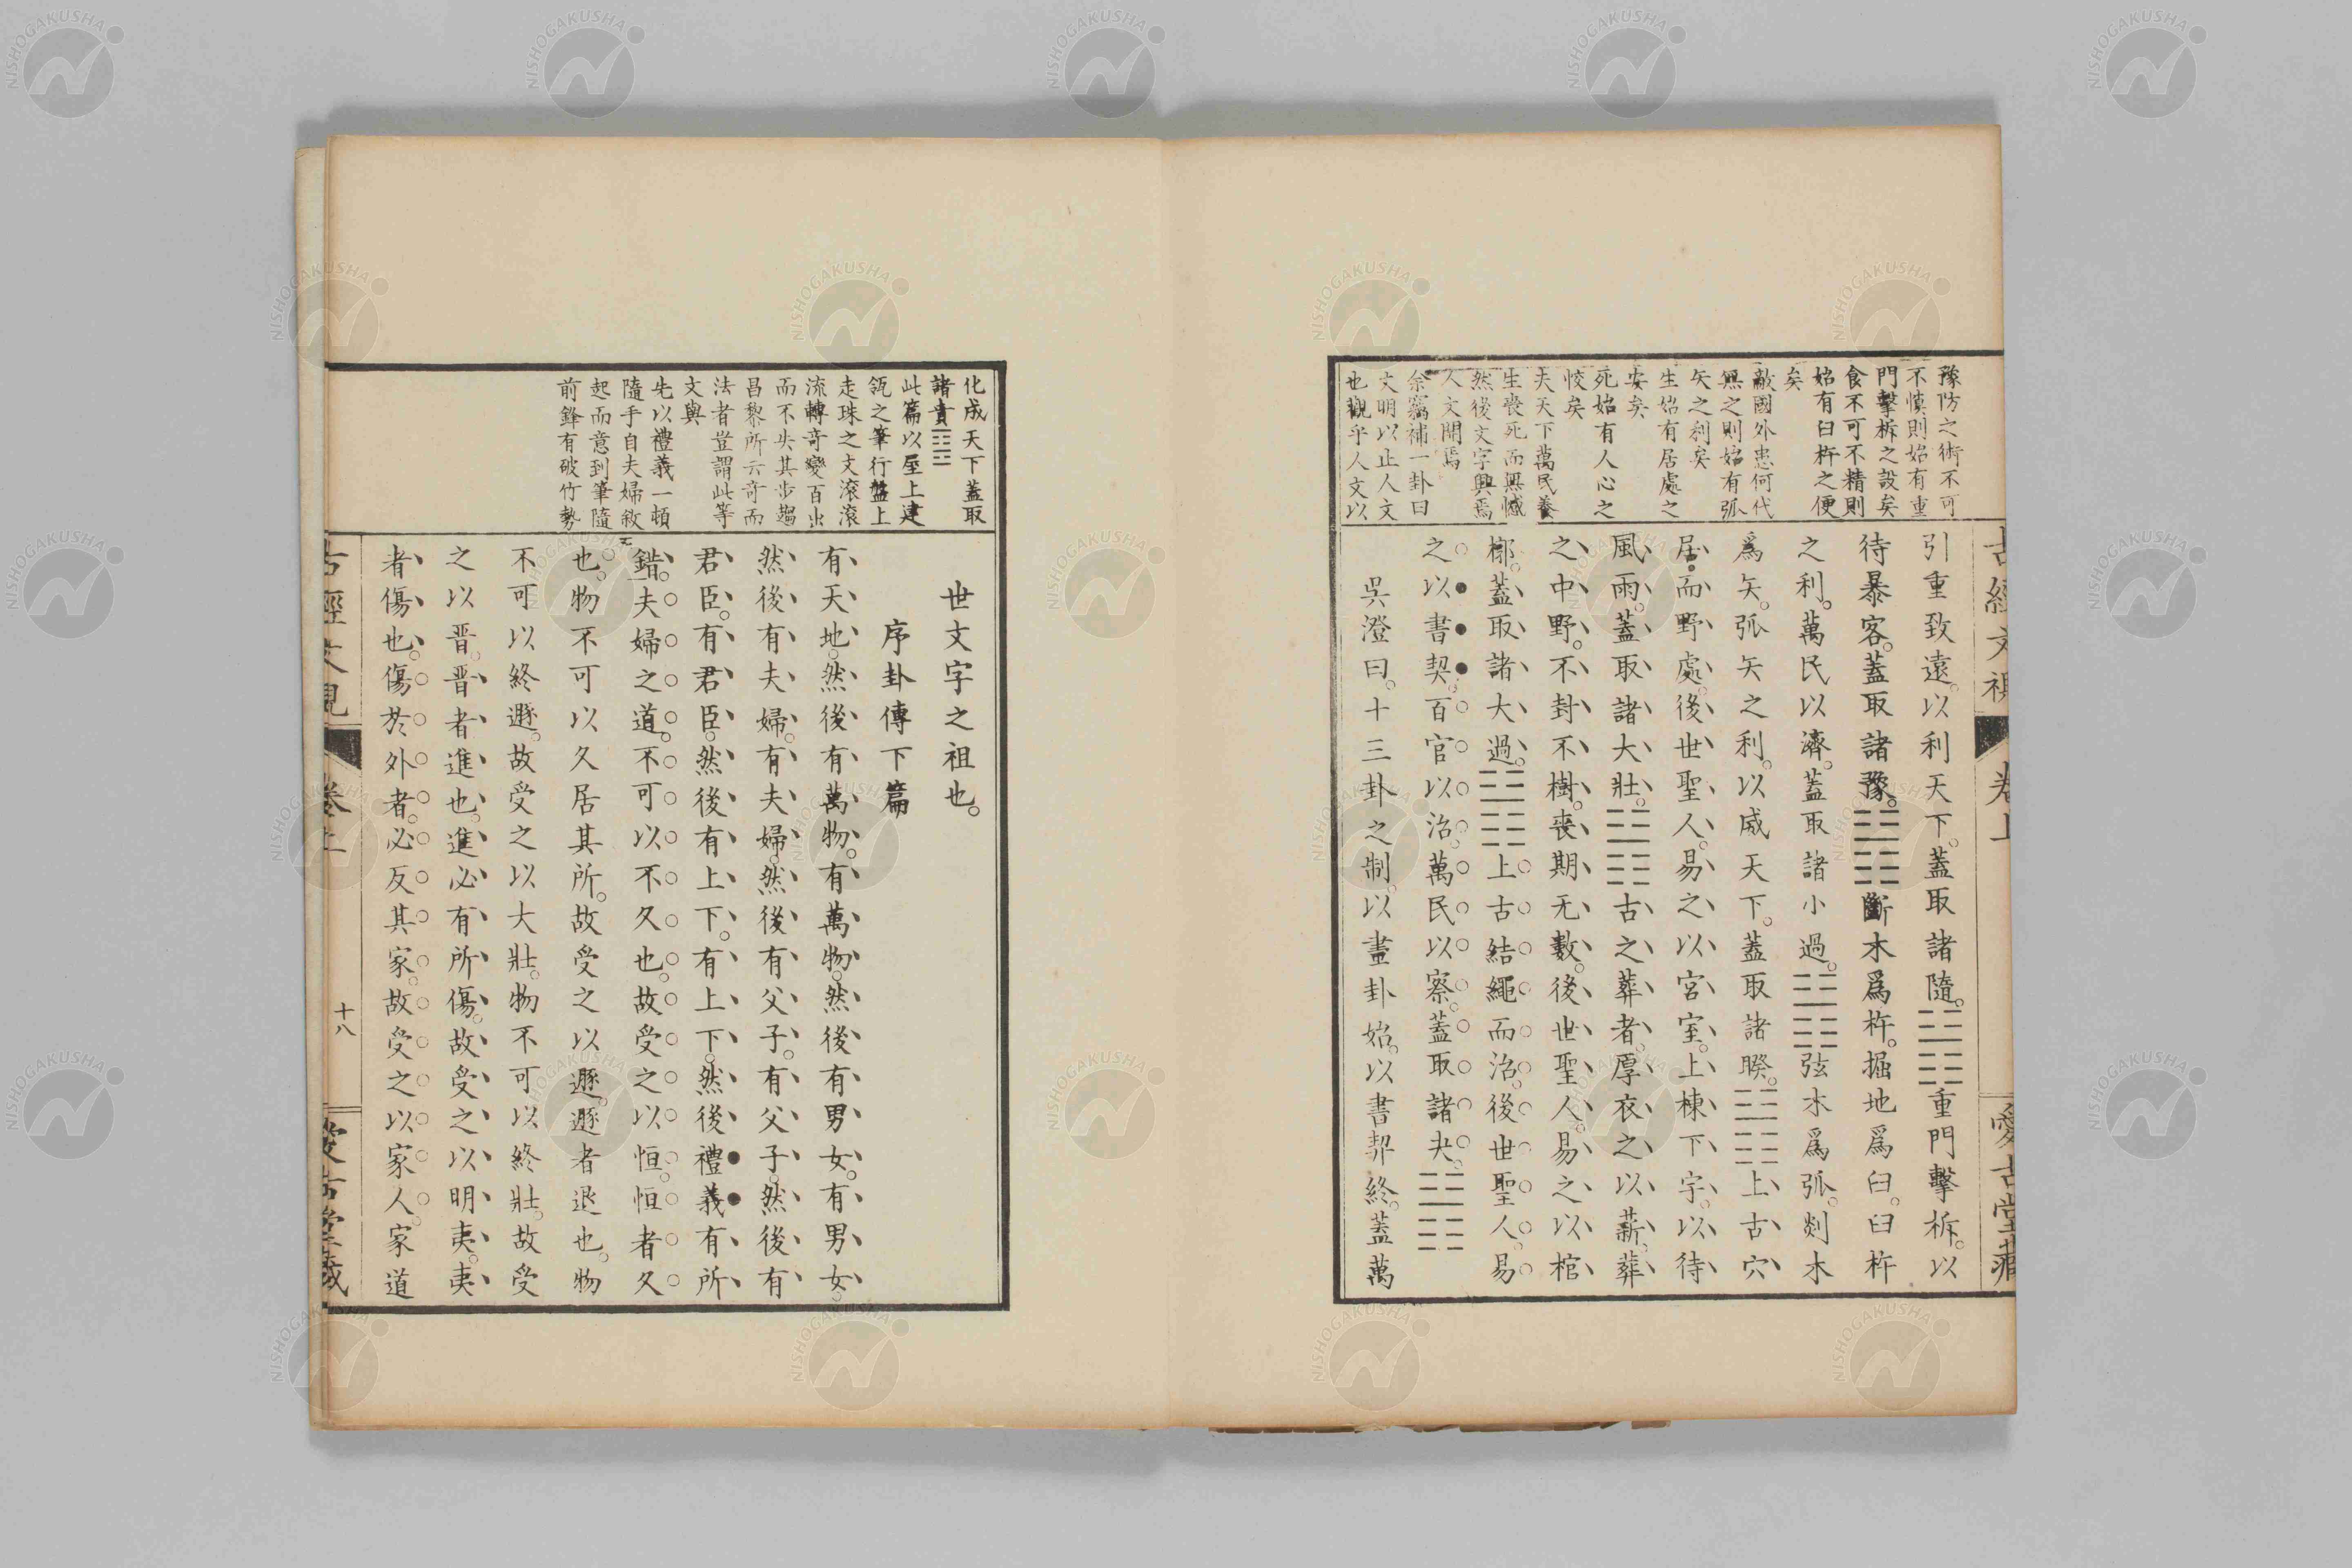 古經文視 卷上 愛古堂藏
豫防之術不可
不慎則始有重
門擊柝之設矣
食不可不精則
始有臼杵之便
矣
敵國外患何代
無之則始有弧
矢之利矣
生始有居處之
安矣
死始有人心之
恔矣
夫天下萬民養
生喪死而無憾
然後文字興焉
人文開焉
余竊補一卦曰
文明以止人文
也觀乎人文以
引重致遠。以利天下。蓋取諸隨。䷐重門擊柝。以
待暴客。蓋取諸豫。䷏斷木爲杵。掘地爲臼。臼杵
之利。萬民以濟。蓋取諸小過。䷽弦木爲弧。剡木
爲矢。弧矢之利。以威天下。蓋取諸睽。䷥上古穴
居而野處。後世聖人。易之以宮室。上棟下宇。以待
風雨。蓋取諸大壯。䷡古之葬者。厚衣之以薪。葬
之中野。不封不樹。喪期无數。後世聖人。易之以棺
槨。蓋取諸大過。䷛上古結繩而治。後世聖人。易
之以書契。百官以治。萬民以察。蓋取諸夬。䷪
吳澄曰。十三卦之制。以畫卦始。以書契終。蓋萬
化成天下蓋取
諸賁䷕
此篇以屋上建
瓴之筆行盤上
走珠之文滾滾
流轉奇變百出
而不失其步趨
昌黎所云奇而
法者豈謂此等
文與
先以禮義一頓
隨手自夫婦敘
起而意到筆隨
前鋒有破竹勢
世文字之祖也。
序卦傳下篇
有天地。然後有萬物。有萬物。然後有男女。有男女。
然後有夫婦。有夫婦。然後有父子。有父子。然後有
君臣。有君臣。然後有上下。有上下。然後禮義有所
錯。夫婦之道。不可以不久也。故受之以恒。恒者久
也。物不可以久居其所。故受之以遯。遯者退也。物
不可以終遯。故受之以大壯。物不可以終壯。故受
之以晋。晋者進也。進必有所傷。故受之以明夷。夷
者傷也。傷於外者。必反其家。故受之以家人。家道
卷上 十八 愛古堂藏